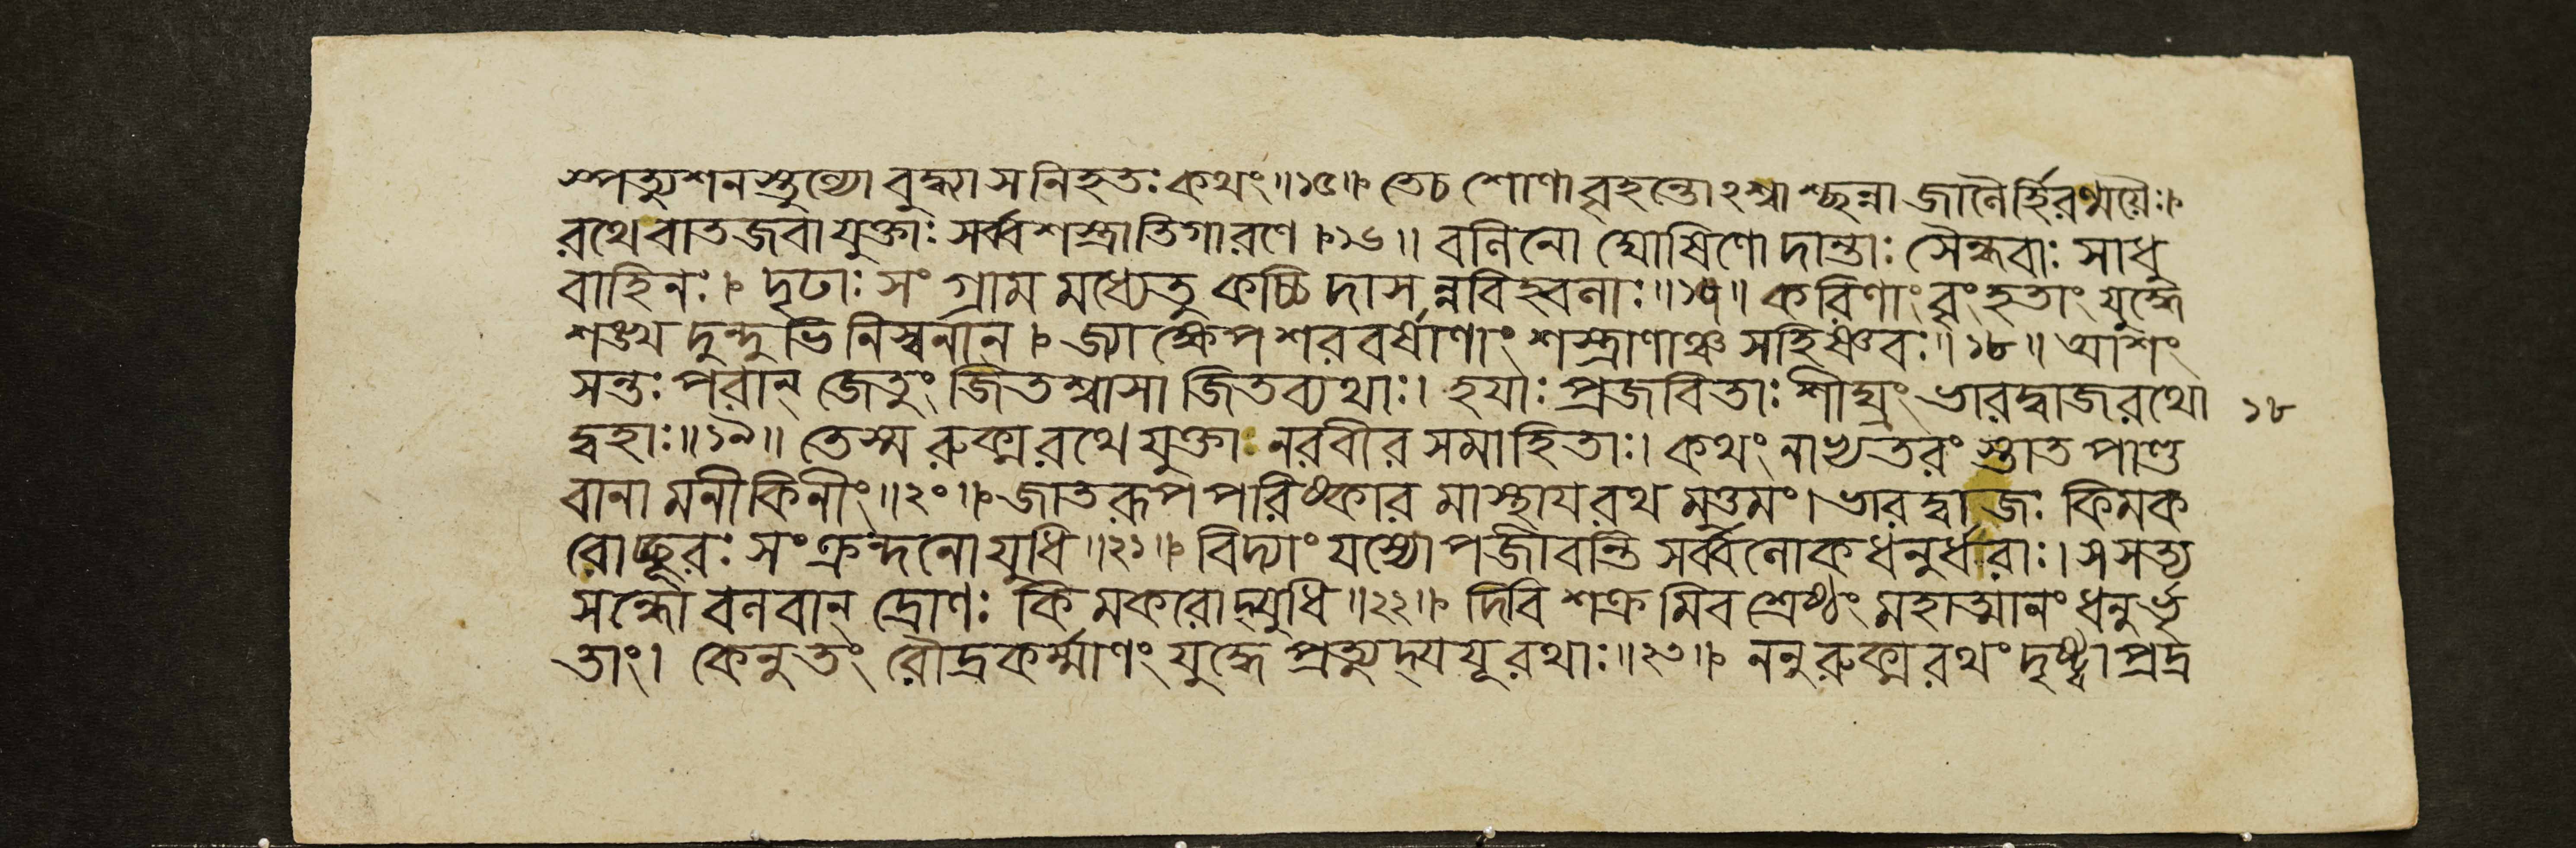 স্পত্যুশনস্তুল্যো বুদ্ধ্যা স নিহতঃ কথং॥১৫॥ তে চ শোণা বৃহন্তোঽশ্বাশ্ছন্না জালৈর্হিরণ্ময়ৈঃ।
রথে বাতজবা যুক্তাঃ সর্ব্বশস্ত্রাতিগা রণে।১৬॥ বলিনো ঘোষিণো দান্তাঃ সৈন্ধবাঃ সাধু
বাহিনঃ। দৃঢাঃ সংগ্রামমধ্যেতু কচ্চিদাসন্নবিহ্বলাঃ॥১৭॥ করিণাং বৃংহতাং যুদ্ধে
শঙ্খদুন্দুভিনিস্বনান। জ্যাক্ষেপশরবর্ষাণাং শস্ত্রাণাঞ্চ সহিষ্ণবঃ॥১৮॥ আশং
সন্তঃ পরান্ জেতুং জিতশ্বাসা জিতব্যথাঃ। হয়াঃ প্রজবিতাঃ শীঘ্রং ভারদ্বাজরথো ১৮
দ্বহাঃ॥১৯॥ তে স্ম রুক্মরথে যুক্তা নরবীরসমাহিতাঃ। কথং নাভ্যতরংস্তাত পাণ্ড
বানামনীকিনীং॥২০॥ জাতরূপপরিষ্কারমাস্থায় রথমুত্তমং। ভারদ্বাজঃ কিমক
রোচ্ছূরঃ সংক্রন্দনো যুধি॥২১॥ বিদ্যাং যস্যোপজীবন্তি সর্ব্বলোকধনুর্ধরাঃ। স সত্য
সন্ধো বলবান্ দ্রোণঃ কিমকরোদ্যুধি॥২২॥ দিবি শক্রমিব শ্রেষ্ঠং মহাত্মানং ধনুর্ভৃ
তাং। কে নু তং রৌদ্রকর্ম্মাণং যুদ্ধে প্রত্যুদ্যযূ রথাঃ॥২৩॥ ননু রুক্মরথং দৃষ্ট্বা প্রদ্র